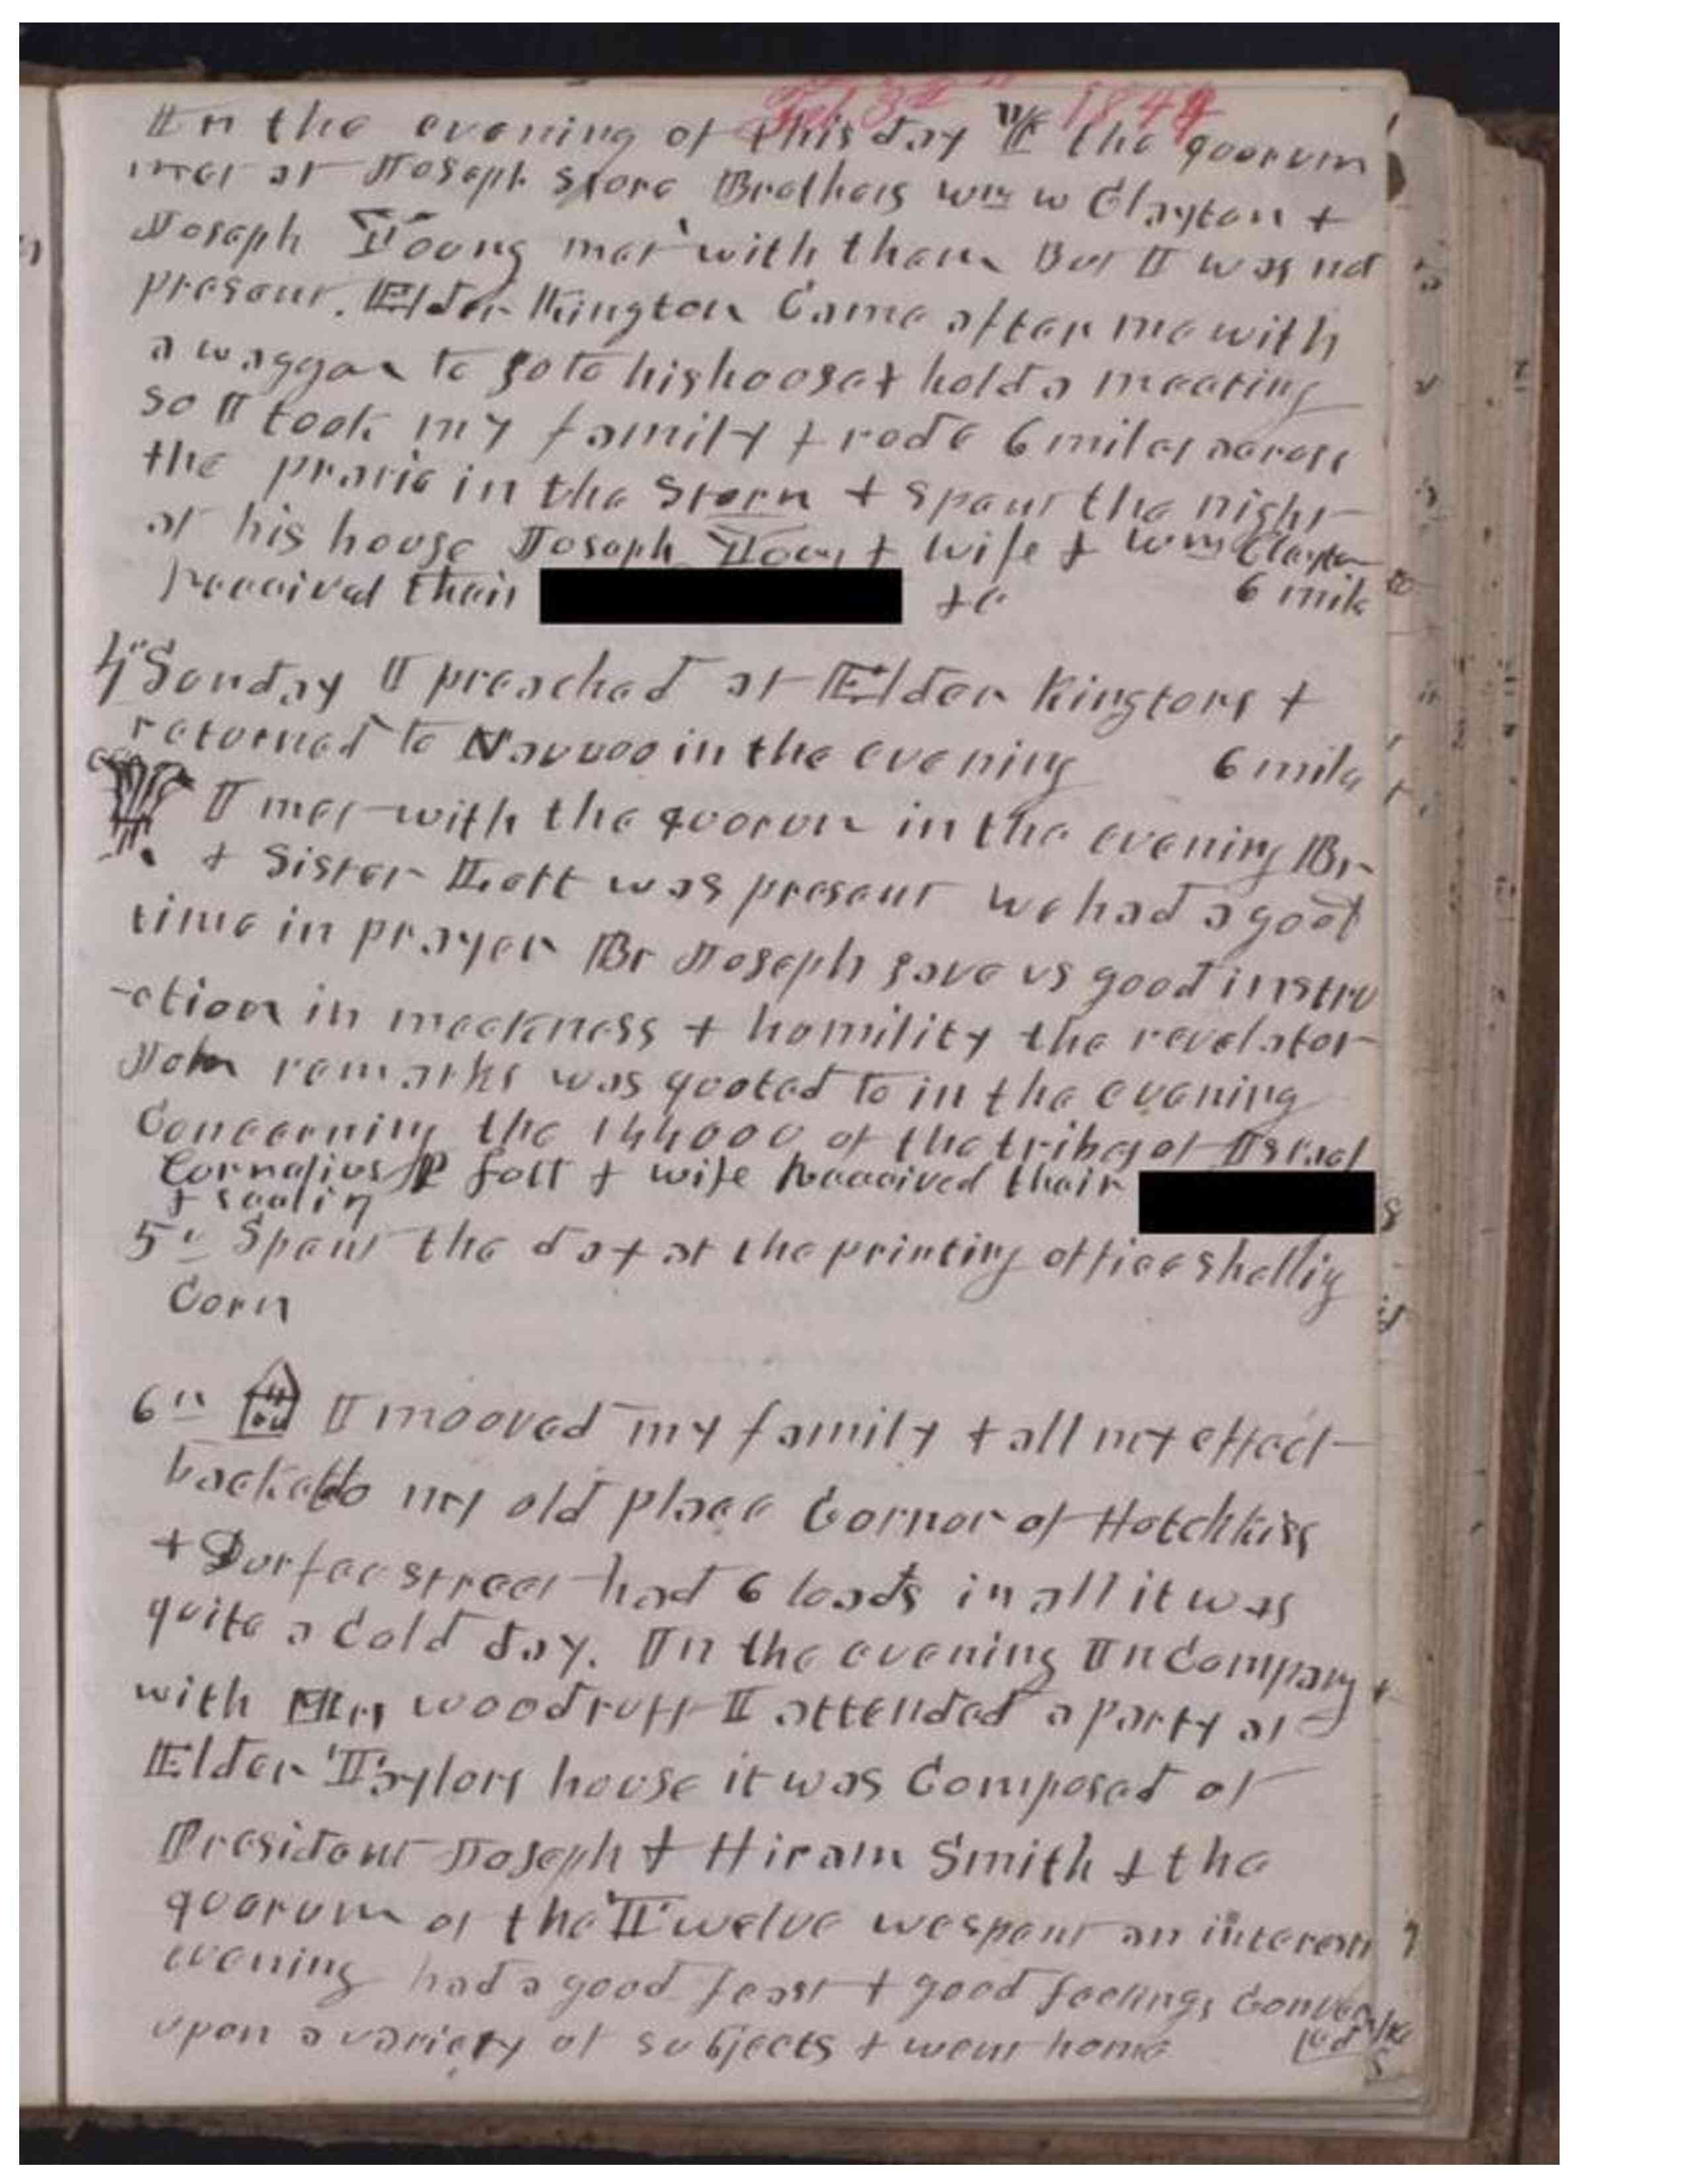 Feb 3d 1844
In the evening of this day the quorum
met at Joseph store Brothers Wm W Clayton +
Joseph Young met with them But I was not
present. Elder Kington Came after me with
a waggon to go to his house & hold a meeting
so I took my family + rode 6 miles across
the prarie in the Storm + spent the night
at his house Joseph Young + wife + Wm Clayton
received their + c 6 mile
4th Sunday I preached at Elder Kingtons +
returned to Nauvoo in the evening 6 mile
I met with the quorum in the evening Br
+ Sister Lott was present we had a good
time in prayer Br Joseph gave us good instru
-ction in meekness + humility the revelator
John remarks was quoted to in the evening
Concerning the 144000 of the tribes of Israel
Cornelius P Lott + wife Received their s
+ sealing
5th Spent the day at the printing office shelling
Corn
6th I mooved my family + all my effect
back to my old place Cornor of Hotchkiss
+ Durfee street had 6 loads in all it was
quite a Cold day. In the evening In Company
with Mrs Woodruff I attended a party at
Elder Taylors house it was Composed of
President Joseph + Hiram Smith + the
quorum of the Twelve we spent an interesti
evening had a good feast + good feelings Conver
upon a variety of subjects + went home